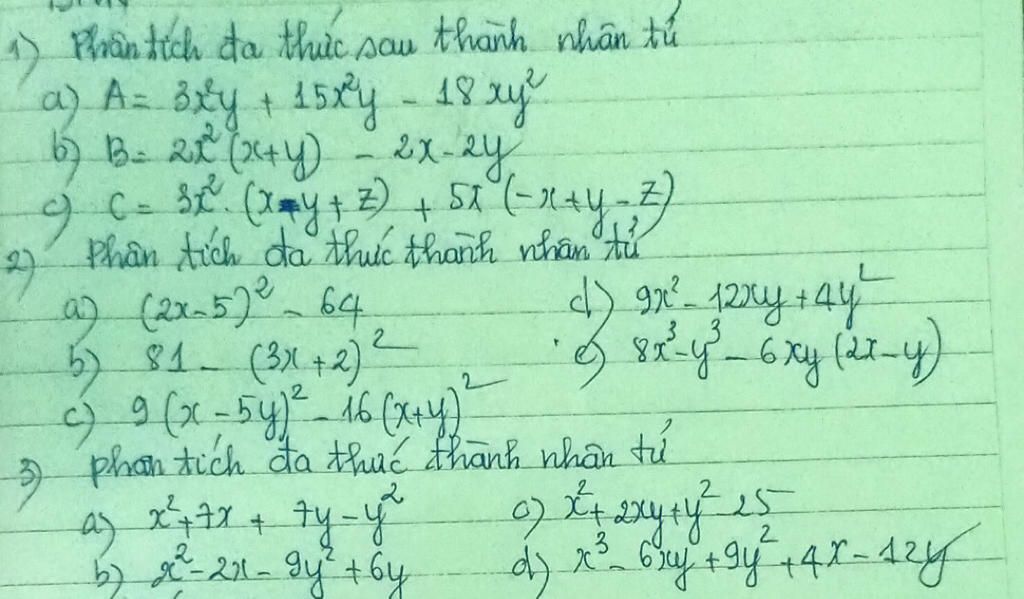 1) Phân tích đa thức sau thành nhân tử
a) A = 3x²y + 15x²y - 18xy²
b) B = 2x²(x+y) - 2x - 2y
c) C = 3x².(x-y+z) + 5x(-x+y-z)
2) Phân tích đa thức thành nhân tử
a) (2x-5)² - 64 d) 9x² - 12xy + 4y²
b) 81 - (3x+2)² e) 8x³ - y³ - 6xy(2x-y)
c) 9(x-5y)² - 16(x+y)²
3) phân tích đa thức thành nhân tử
a) x² + 7x + 7y - y² c) x² + 2xy + y² - 25
b) x² - 2x - 9y² + 6y d) x³ - 6xy + 9y² + 4x - 12y